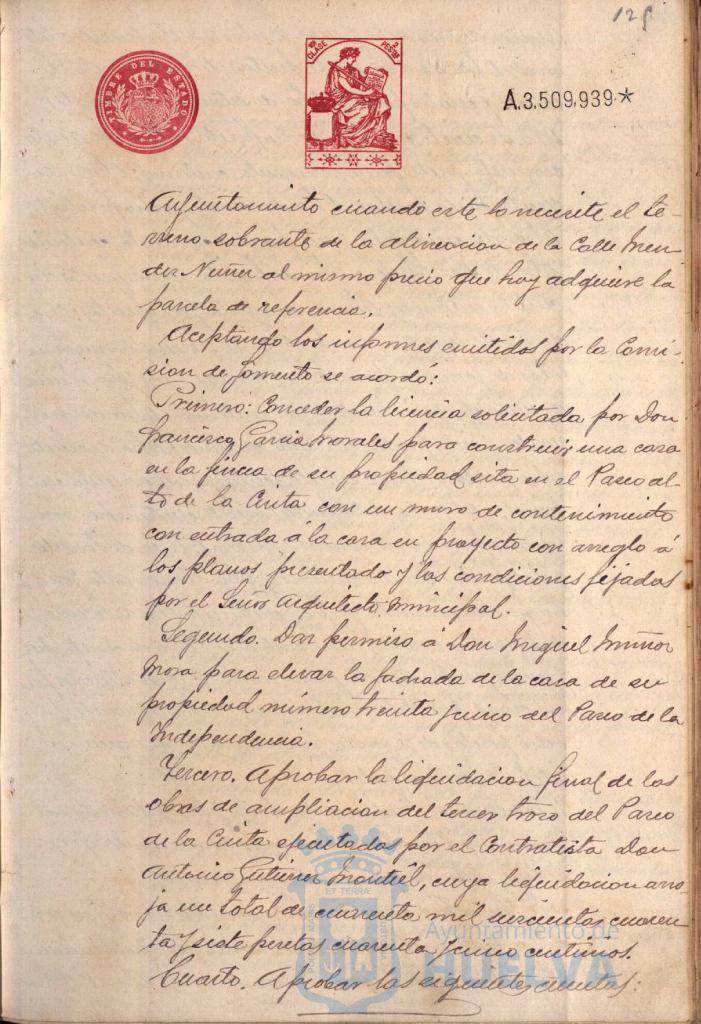 125
TIMBRE DEL ESTADO
10ª CLASE 2 PESETAS
A.3.509,939.*
Ayuntamiento cuando este lo necesite el te-
rreno sobrante de la alineacion de la Calle Men-
dez Nuñez al mismo precio que hoy adquiere la
parcela de referencia.
Aceptando los informes emitidos por la Comi-
sion de Fomento se acordó:
Primero: Conceder la licencia solicitada por Don
Francisco Garcia Morales para construir una casa
en la finca de su propiedad sita en el Paseo al-
to de la Cinta con un muro de contenimiento
con entrada á la casa en proyecto con arreglo á
los planos presentado y las condiciones fijadas
por el Señor Arquitecto municipal.
Segundo. Dar permiso á Don Miguel Muñoz
Mora para elevar la fachada de la casa de su
propiedad número treinta y cinco del Paseo de la
Independencia.
Tercero. Aprobar la liquidacion final de las
obras de ampliacion del tercer trozo del Paseo
de la Cinta ejecutadas por el Contratista Don
Antonio Gutierrez Montiel, cuya liquidacion arro-
ja un total de cuarenta mil seiscientas cuaren-
ta y siete pesetas cuarenta y cinco centimos.
Cuarto. Aprobar las siguientes cuentas:
ET TERRÆ
Ayuntamiento de
HUELVA